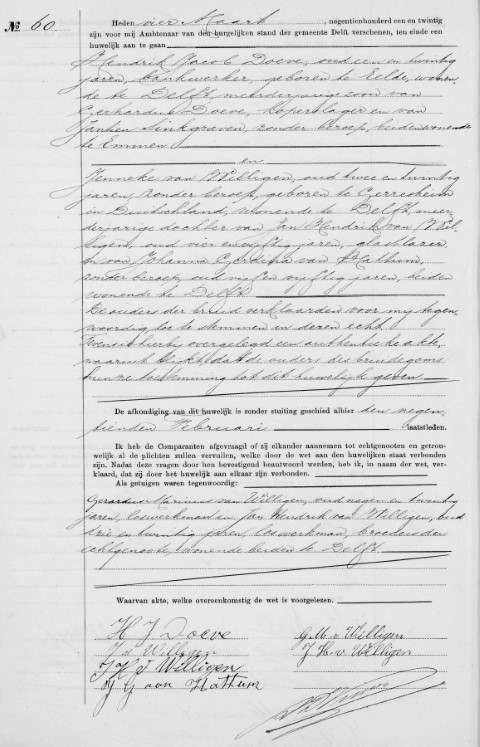 No 60.
Heden vier Maart, negentienhonderd een en twintig
zijn voor mij Ambtenaar van den burgelijken stand der gemeente Delft verschenen, ten einde een
huwelijk aan te gaan
Hendrik Jacob Doeve, oud een en twintig
jaren, bankwerker, geboren te Zelde, wonen
de te Delft, meerderjarige zoon van
Gerhardus Doeve, koperslager en van
Jantien Sinkgraven, zonder beroep, beiden wonende
te Emmen
en
Jenneke van Willigen, oud twee en twintig
jaren, zonder beroep, geboren te Gerresheim
in Duitschland, wonende te Delft, meer
derjarige dochter van Jan Hendrik van Wil
ligen, oud vier en vijftig jaren, glasblazer
en van Johanna Gerdina van Hathum,
zonder beroep, oud vijf en vijftig jaren, beiden
wonende te Delft
De ouders der bruid verklaarden voor mij tegen
woordig, toe te stemmen in deren echt
Voorts is hierbij overgelegd een authentieke akte,
waaruit blijkt, dat de ouders des bruidegoms
hunne toestemming tot dit huwelijk geven
De afkondiging van dit huwelijk is zonder stuiting geschied alhier den negen
tienden Februari laatstleden.
Ik heb de Comparanten afgevraagd of zij elkander aannemen tot echtgenooten en getrouw-
elijk al de plichten zullen vervullen, welke door de wet aan den huwelijken staat verbonden
zijn. Nadat deze vragen door hen bevestigend beantwoord werden, heb ik, in naam der wet, ver-
klaard, dat zij door het huwelijk aan elkaar zijn verbonden.
Als getuigen waren tegenwoordig:
Gerardus Marinus van Willigen, oud negen en twintig
jaren, loswerkman en Jan Hendrik van Willigen, oud
drie en twintig jaren, loswerkman, broeders der
echtgenoote, wonende beiden te Delft
Waarvan akte, welke overeenkomstig de wet is voorgelezen.
H J Doeve
J v Willigen
J H v Willigen
J G van Hathum
G. M. v Willigen
J. H. v. Willigen